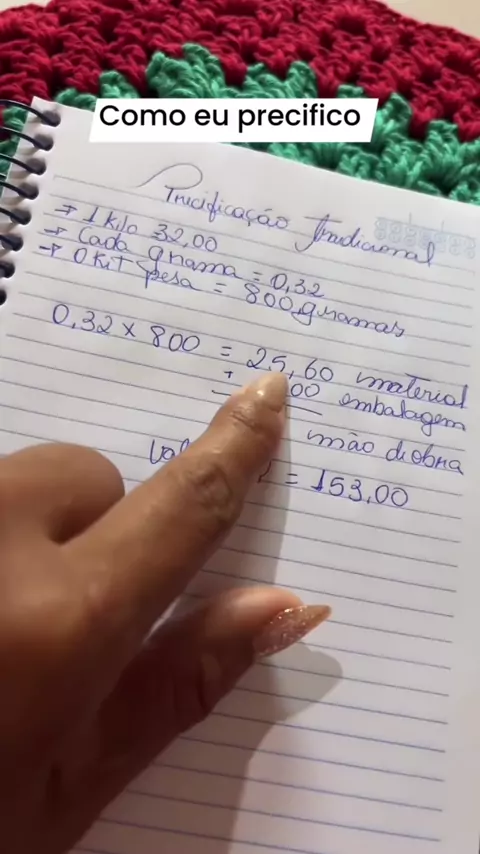 Como eu precifico
Precificação Tradicional
→ 1 kilo 32,00
→ Cada grama = 0,32
→ O Kit pesa = 800 gramas
0,32 x 800 = 25,60 material
+ 00 embalagem
mão di obra
= 153,00